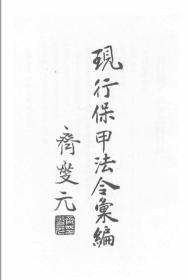 現行保甲法令彙編
齊燮元